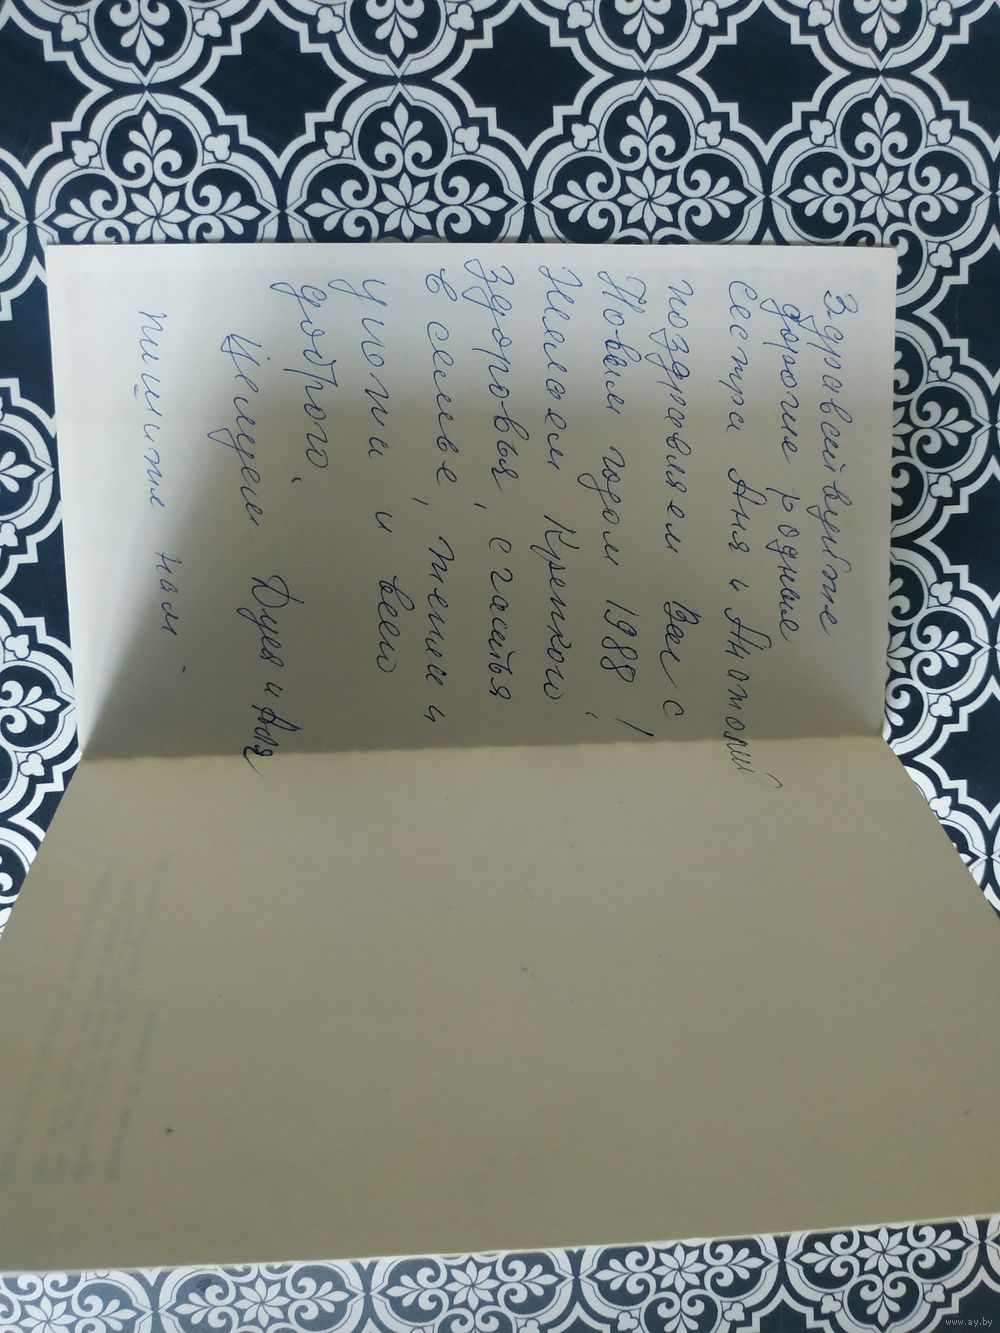 Здравствуйте
дорогие родные
сестра Аня и Анатолий
поздравляем Вас с
Новым годом 1988!
Желаем Крепкого
Здоровья, счастья
в семье, тепла и
уюта и всего
доброго.
Целуем Дуся и Аля
пишите нам.
www.ay.by